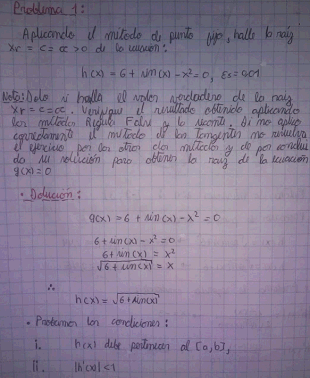 Problema 1:
Aplicando el método de punto fijo, halle la raíz
Xr = c = α > 0 de la ecuación:
h(x) = 6 + sin(x) - x² = 0, Es = 0.01
Nota: Solo si halla el valor verdadero de la raíz
Xr = c = α. Verifique el resultado obtenido aplicando
los métodos Regula Falsi y la secante. Si no aplica
correctamente el método de las tangentes no resuelva
el ejercicio por los otros dos métodos y de por conclui
do su solución para obtener la raíz de la ecuación
g(x) = 0
• Solución:
g(x) = 6 + sin(x) - x² = 0
6 + sin(x) - x² = 0
6 + sin(x) = x²
√6 + sin(x) = x
∴
h(x) = √6 + sin(x)
• Probemos las condiciones:
i. h(x) debe pertenecer al [a,b],
ii. |h'(x)| < 1